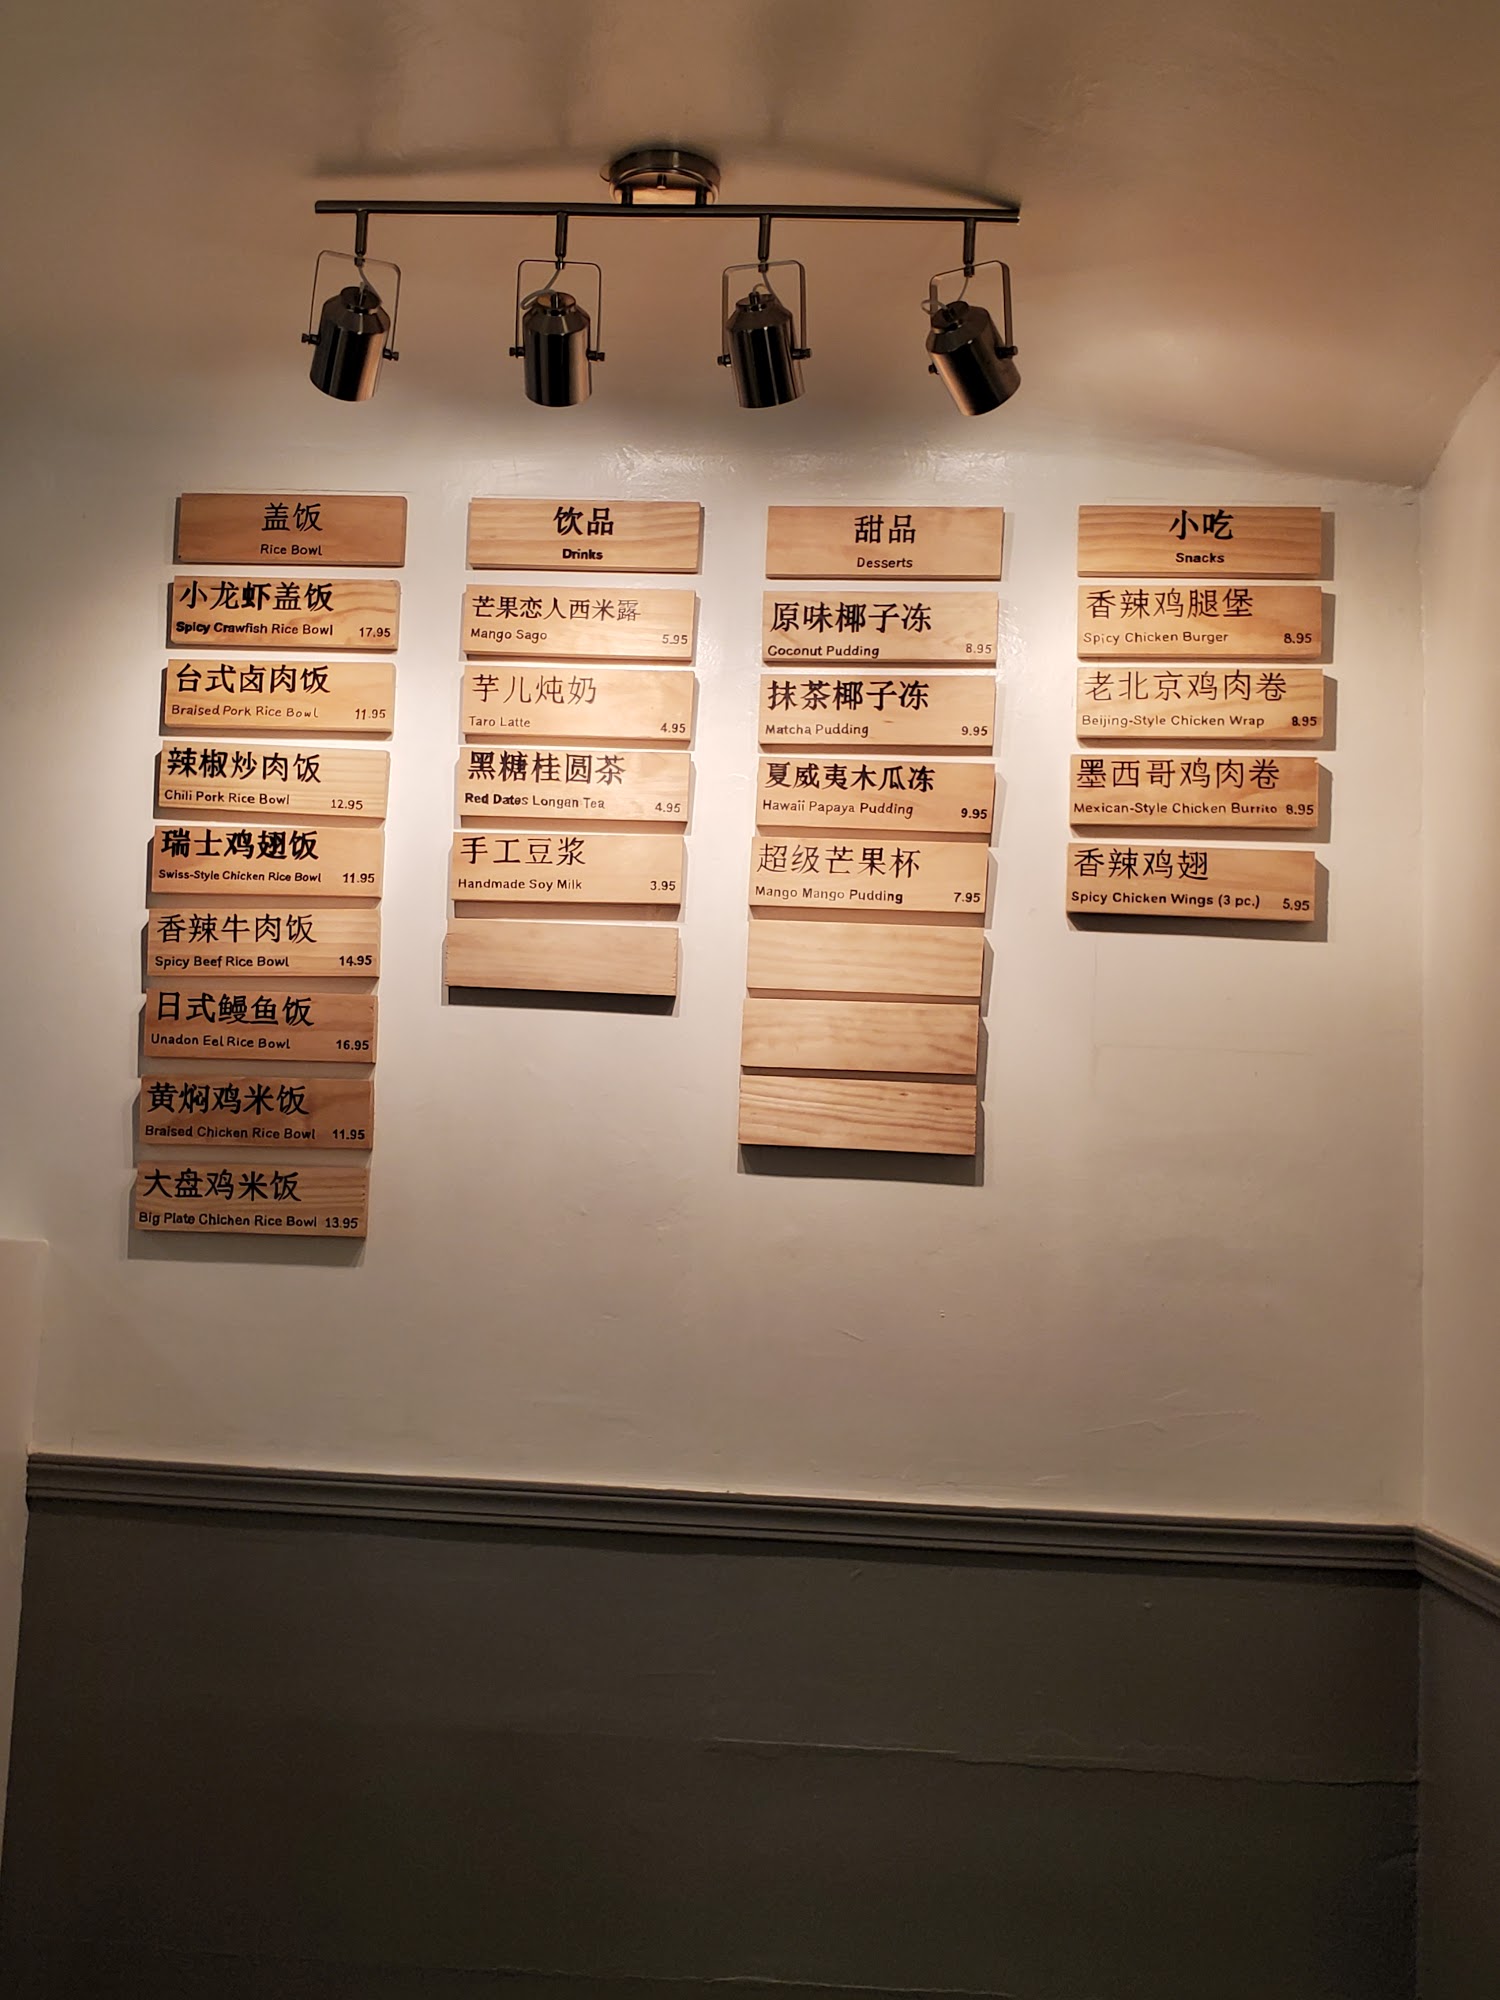 盖饭
Rice Bowl
小龙虾盖饭
Spicy Crawfish Rice Bowl 17.95
台式卤肉饭
Braised Pork Rice Bowl 11.95
辣椒炒肉饭
Chili Pork Rice Bowl 12.95
瑞士鸡翅饭
Swiss-Style Chicken Rice Bowl 11.95
香辣牛肉饭
Spicy Beef Rice Bowl 14.95
日式鳗鱼饭
Unadon Eel Rice Bowl 16.95
黄焖鸡米饭
Braised Chicken Rice Bowl 11.95
大盘鸡米饭
Big Plate Chichen Rice Bowl 13.95
饮品
Drinks
芒果恋人西米露
Mango Sago 5.95
芋儿炖奶
Taro Latte 4.95
黑糖桂圆茶
Red Dates Longan Tea 4.95
手工豆浆
Handmade Soy Milk 3.95
甜品
Desserts
原味椰子冻
Coconut Pudding 8.95
抹茶椰子冻
Matcha Pudding 9.95
夏威夷木瓜冻
Hawaii Papaya Pudding 9.95
超级芒果杯
Mango Mango Pudding 7.95
小吃
Snacks
香辣鸡腿堡
Spicy Chicken Burger 8.95
老北京鸡肉卷
Beijing-Style Chicken Wrap 8.95
墨西哥鸡肉卷
Mexican-Style Chicken Burrito 8.95
香辣鸡翅
Spicy Chicken Wings (3 pc.) 5.95